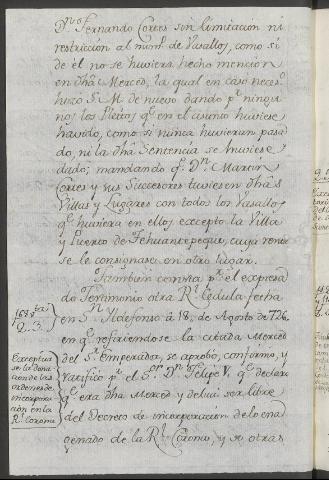 Dn. Fernando Cortes sin limitación ni
restricción al num.º de Vasallos, como si
de él no se huviera hecho mención
en dha Merced, la qual en caso neces.º
hizo S. M. de nuevo dando p.r ningu-
nos los Pleitos q.e en el asunto huviese
havido, como si nunca huvieran pasa-
do, ni la dha Sentencia se huviese
dado; mandando q.e Dn. Martin
Cortes y sus Successores tuviesen dhas
Villas y Lugares con todos los Vasallos
q.e huviera en ellos excepto la Villa
y Puerto de Tehuantepeque, cuya renta
se le consignase en otro lugar.
Tambien consta p.r el expresa-
do Testimonio otra R.l Cedula fecha
en Sn. Ildefonso á 18, de Agosto de 726,
en q.e refiriendose la citada Merced
del S.r Emperador, se aprobó, confirmó, y
ratificó p.r el S.or Dn. Felipe V, q.e declaró
q.e era dha Merced y devia ser libre
del Decreto de incorporación de lo ena-
genado de la R.l Corona, y se otras
Exceptua
se la dona
cion de las
ordenes de
incorpora-
cion en la
R.l Corona